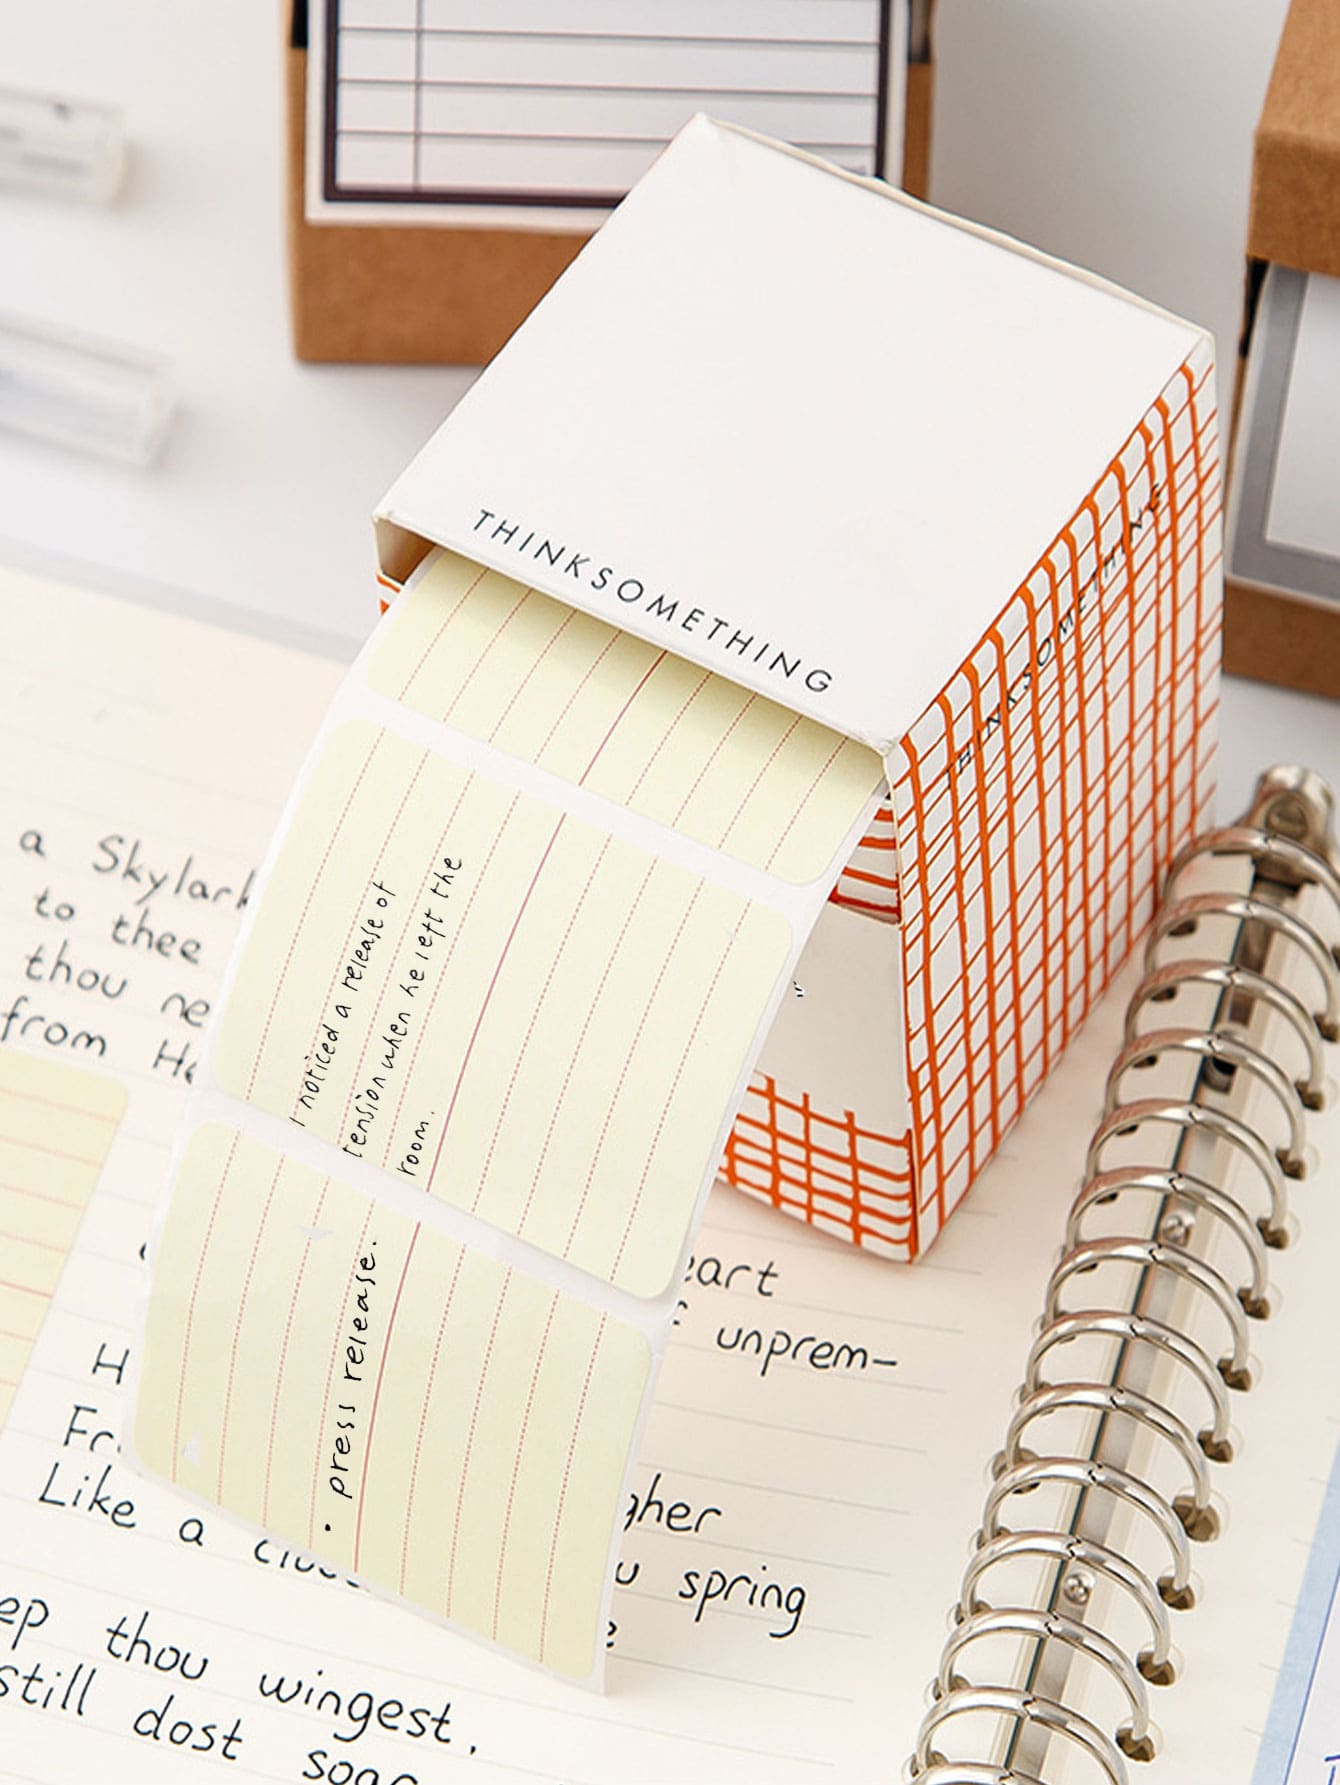 THINKSOMETHING
THINKSOMETHING
I noticed a release of
tension when he left the
room.
• press release.
a Skylark
to thee
thou
from
unprem-
spring
Like a
thou wingest.
still dost